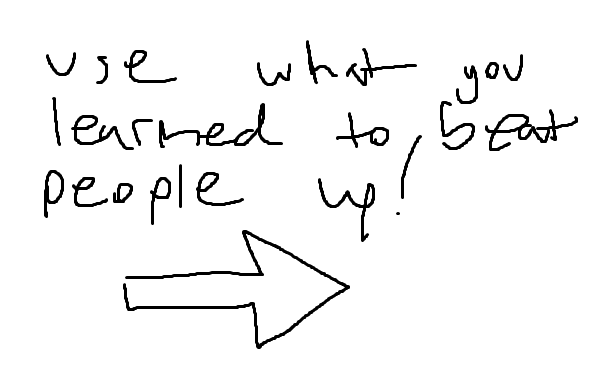 use what you
learned to beat
people up!